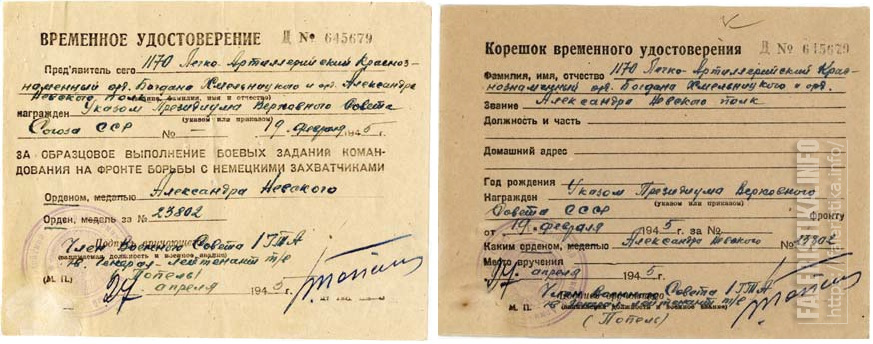 ВРЕМЕННОЕ УДОСТОВЕРЕНИЕ Д № 645679
Пред'явитель сего 1170 Легко-Артиллерийский Красноз-
наменный орд. Богдана Хмельницкого и орд. Александра
Невского полк
(звание, фамилия, имя и отчество)
награжден Указом Президиума Верховного Совета
(указом или приказом)
Союза ССР № — 19 февраля 1945 г.
ЗА ОБРАЗЦОВОЕ ВЫПОЛНЕНИЕ БОЕВЫХ ЗАДАНИЙ КОМАН-
ДОВАНИЯ НА ФРОНТЕ БОРЬБЫ С НЕМЕЦКИМИ ЗАХВАТЧИКАМИ
Орденом, медалью Александра Невского
Орден, медаль за № 23802
Член Военного Совета 1 ГТА
(занимаемая должность и военное звание)
Гв. Генерал-лейтенант т/в
(Попель)
(М. П.) 27 апреля 1945 г.
Корешок временного удостоверения Д № 645679
Фамилия, имя, отчество 1170 Легко-Артиллерийский Крас-
нознаменный орд. Богдана Хмельницкого и орд.
Звание Александра Невского полк
Должность и часть
Домашний адрес
Год рождения
Награжден Указом Президиума Верховного
(указом или приказом)
Совета СССР фронту
от 19 февраля 1945 г. за №
Каким орденом, медалью Александра Невского № 23802
Место вручения
27 апреля 1945 г.
Член Военного Совета 1 ГТА
М. П. Гв. Генерал-лейтенант т/в
(Попель)
FALERISTIKA.INFO